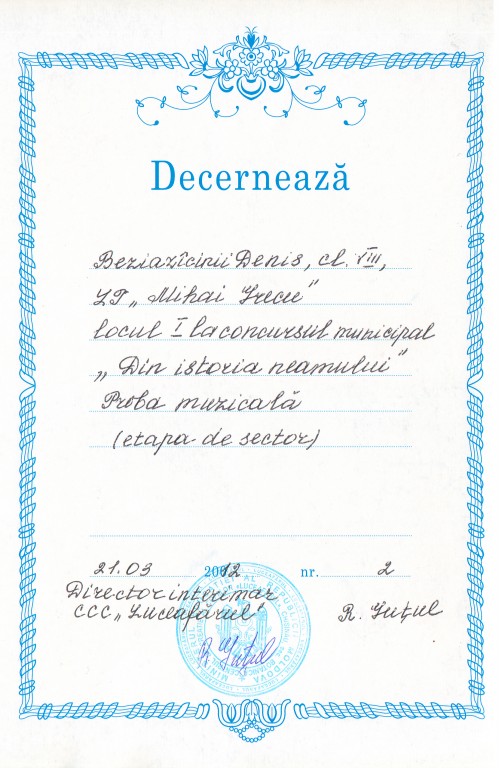 Decernează
Beziazîcinii Denis, cl. VIII,
LT „Mihai Grecu"
locul I la concursul municipal
„Din istoria neamului"
Proba muzicală
(etapa de sector)
21.03 2012 nr. 2
Director interimar
CCC „Luceafărul" R. Guțul
R Guțul